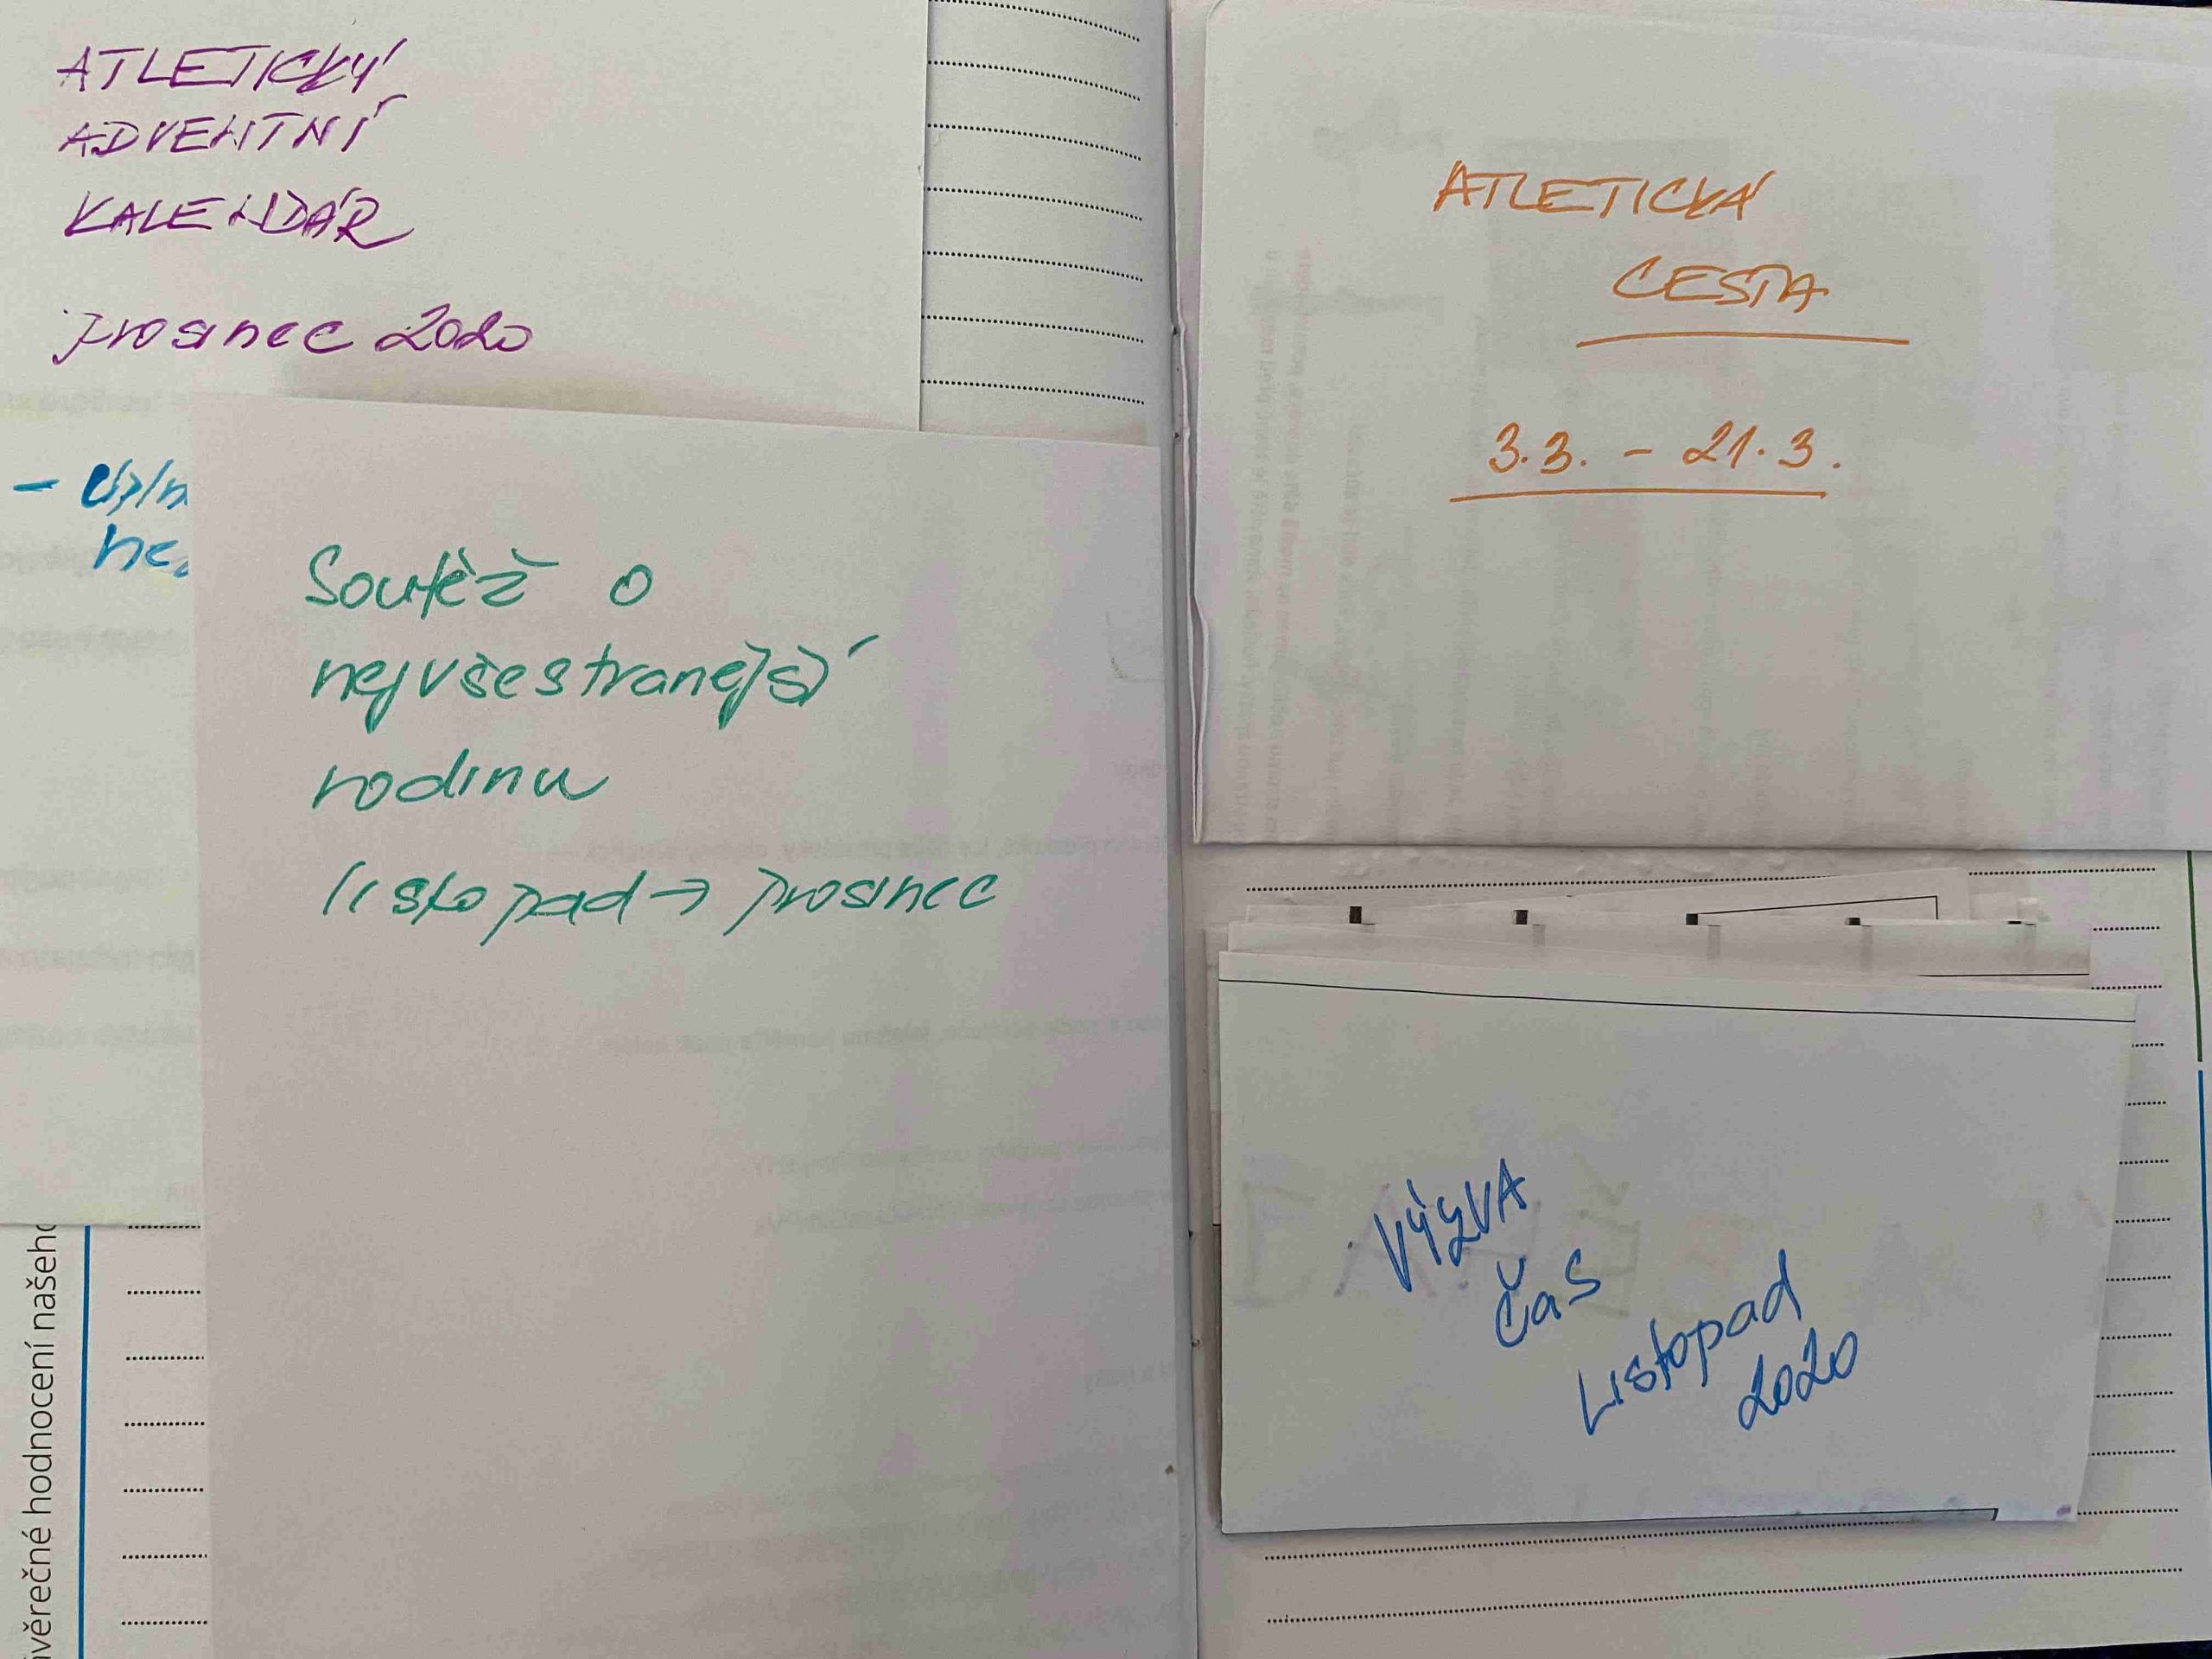 ATLETICKÝ
ADVENTNÍ
KALENDÁŘ
prosinec 2020
Soutěž o
nejvšestranější
rodinu
listopad → prosinec
ATLETICKÁ
CESTA
3.3. - 21.3.
VÝZVA
čas
Listopad
2020
hodnocení našeho